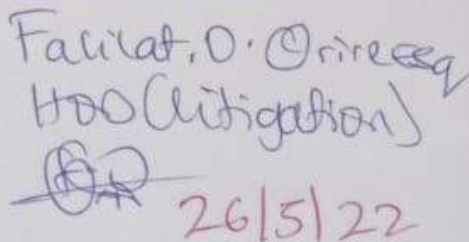 Facilat. O. Orire esq
HOD (Litigation)
26/5/22